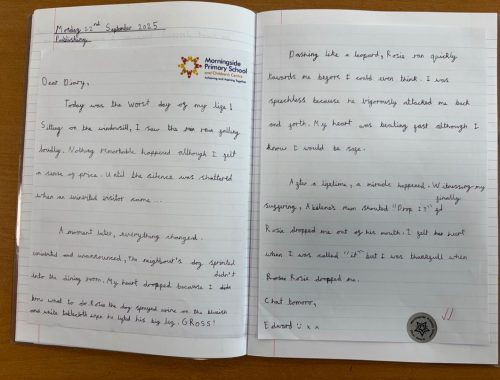 Monday 22nd September 2025
Publishing
Morningside
Primary School
and Children's Centre
Achieving and Aspiring Together
Dear Diary,
Today was the worst day of my life!
Sitting on the windowsill, I saw the rain falling
loudly. Nothing remarkable happened although I felt
a sense of price. Until the silence was shattered
when an uninvited visitor came...
A moment later, everything changed.
uninvited and unannounced, The neighbour's dog sprinted
into the dining room. My heart dropped because I didn't
know what to do. Rosie the dog sprayed urine on the blueish
and white tablecloth when he lifted his big leg. GROSS!
Dashing like a leopard, Rosie ran quickly
towards me before I could even think. I was
speechless because he vigorously attacked me back
and forth. My heart was beating fast although I
know I would be safe.
After a lifetime, a miracle happened. Witnessing my
suffering, Abalena's mum shouted "Drop it!" finally
Rosie dropped me out of his mouth. I felt hurt
when I was called "it" but I was thankfull when
Rosie dropped me.
Chat tomoro,
Edward x x